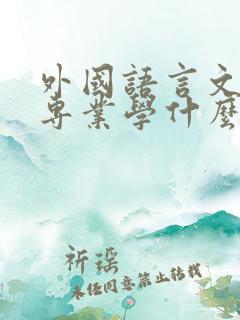 外國語言文
專業學什麼
祈瑶
未经同意禁止转载